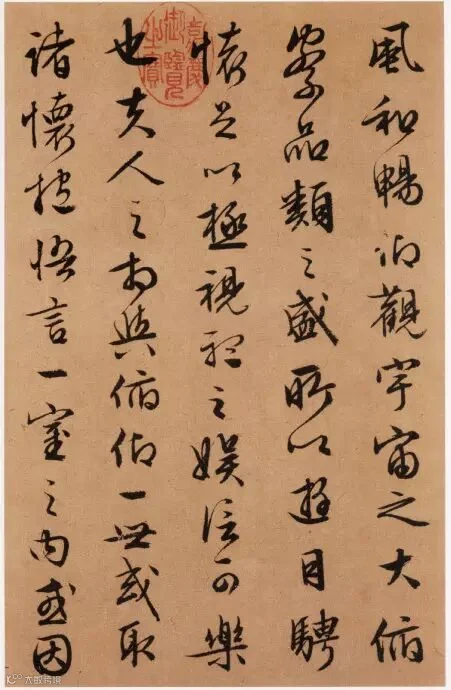 風和暢仰觀宇宙之大俯
察品類之盛所以遊目騁
懷足以極視聽之娛信可樂
也夫人之相與俯仰一世或取
諸懷抱悟言一室之內或因
嘉慶御覽之寶